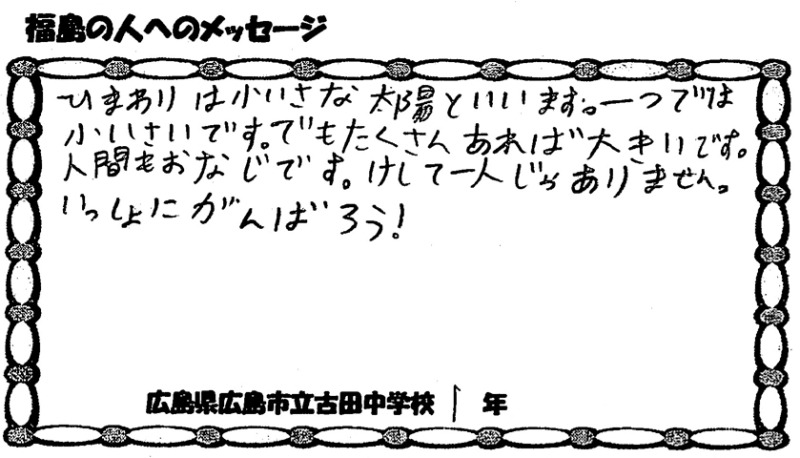 福島の人へのメッセージ
ひまわりは小いさな太陽といいます。一つでは
小いさいです。でもたくさんあれば大きいです。
人間もおなじです。けして一人じゃありません。
いっしょにがんばろう!
広島県広島市立古田中学校 1 年